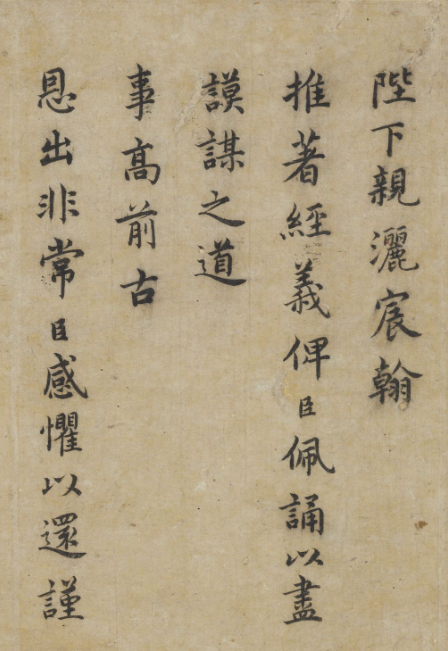 陛下親灑宸翰
推著經義俾臣佩誦以盡
謨謀之道
事高前古
恩出非常臣感懼以還謹